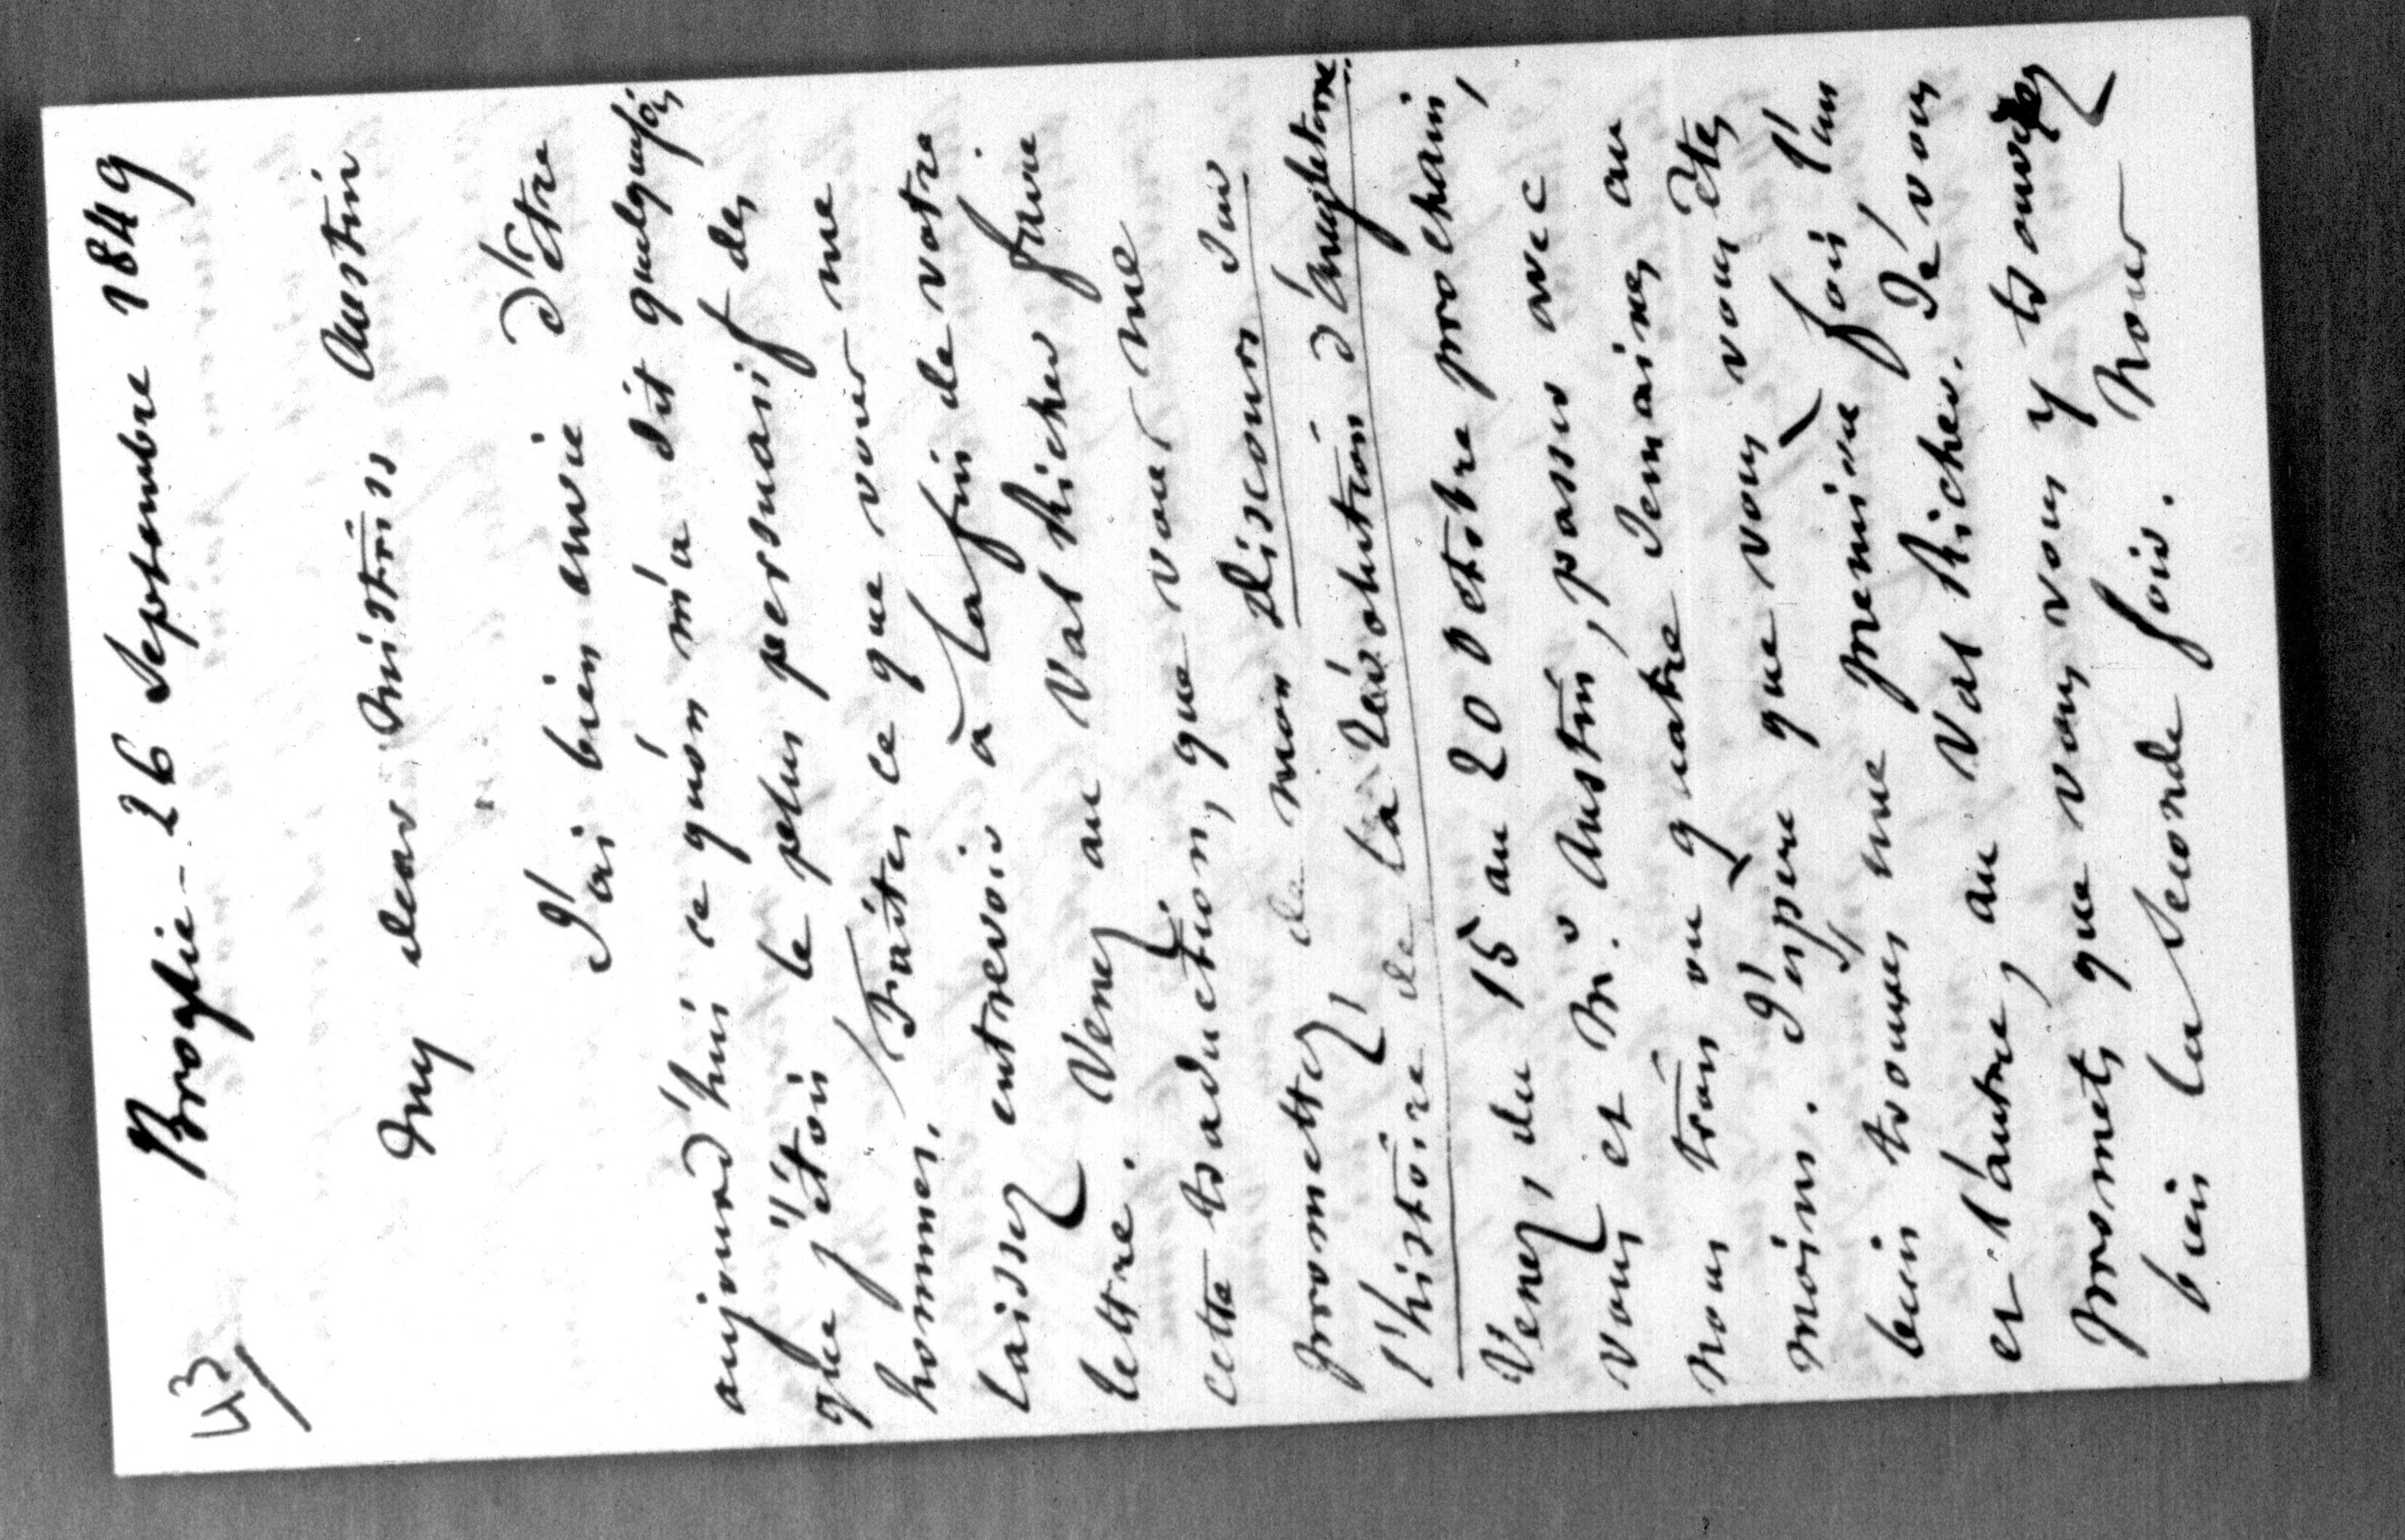 43
Broglie - 26 Septembre 1849
My dear Mistriss Austin
J'ai bien envie d'être
aujourd'hui ce qu'on m'a dit quelquefois
que j'étois le plus persuasif des
hommes. Faites ce que vous me
laissez entrevoir à la fin de votre
lettre. Venez au Val Richer faire
cette traduction, que vous me
promettez, de mon Discours sur
l'histoire de la Révolution d'Angleterre.
Venez, du 15 au 20 Octobre prochain,
vous et Mr. Austin, passer avec
nous trois ou quatre semaines au
moins. J'espère que vous vous êtes
bien trouvés une première fois, l'un
et l'autre, au Val Richer. Je vous
promets que vous vous y trouverez
bien la seconde fois. Nous